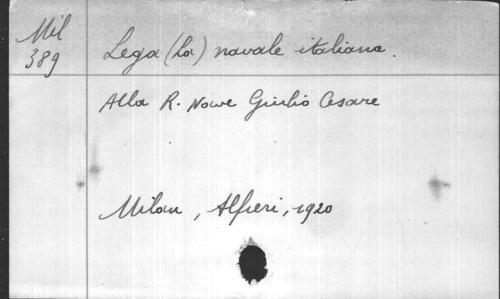 Mil
389
Lega (La) navale italiana.
Alla R. Nave Giulio Cesare
Milan, Alfieri, 1920